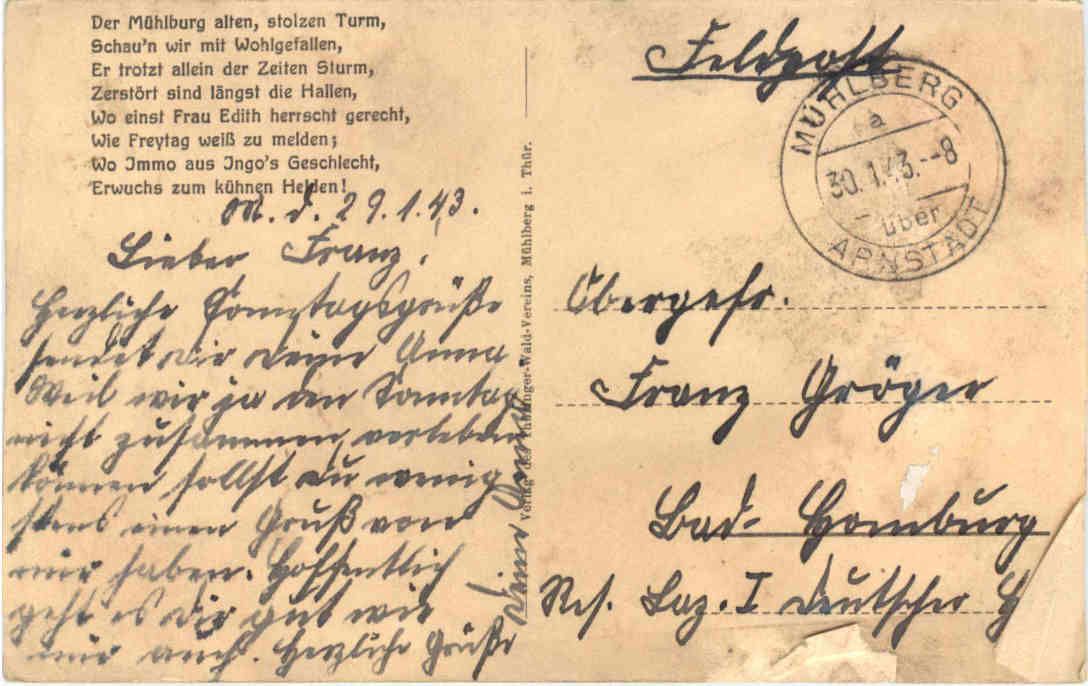 Der Mühlburg alten, stolzen Turm,
Schau'n wir mit Wohlgefallen,
Er trotzt allein der Zeiten Sturm,
Zerstört sind längst die Hallen,
Wo einst Frau Edith herrscht gerecht,
Wie Freytag weiß zu melden;
Wo Immo aus Ingo's Geschlecht,
Erwuchs zum kühnen Helden!
M. d. 29.1.43.
Lieber Franz.
Herzliche Sonntagsgrüße
sendet Dir deine Anna
Weil wir ja den Sonntag
nicht zusammen verleben
können sollst du wenig
stens einen Gruß von
mir haben. Hoffentlich
geht es dir gut wie
mir auch. Herzliche Grüße
Deine Anna
Verlag des Thüringer-Wald-Vereins, Mühlberg i. Thür.
Feldpost
MÜHLBERG
a
30.1.43.--8
über
ARNSTADT
Obergefr.
Franz Gröger
Bad-Homburg
Res. Laz. I Deutscher H